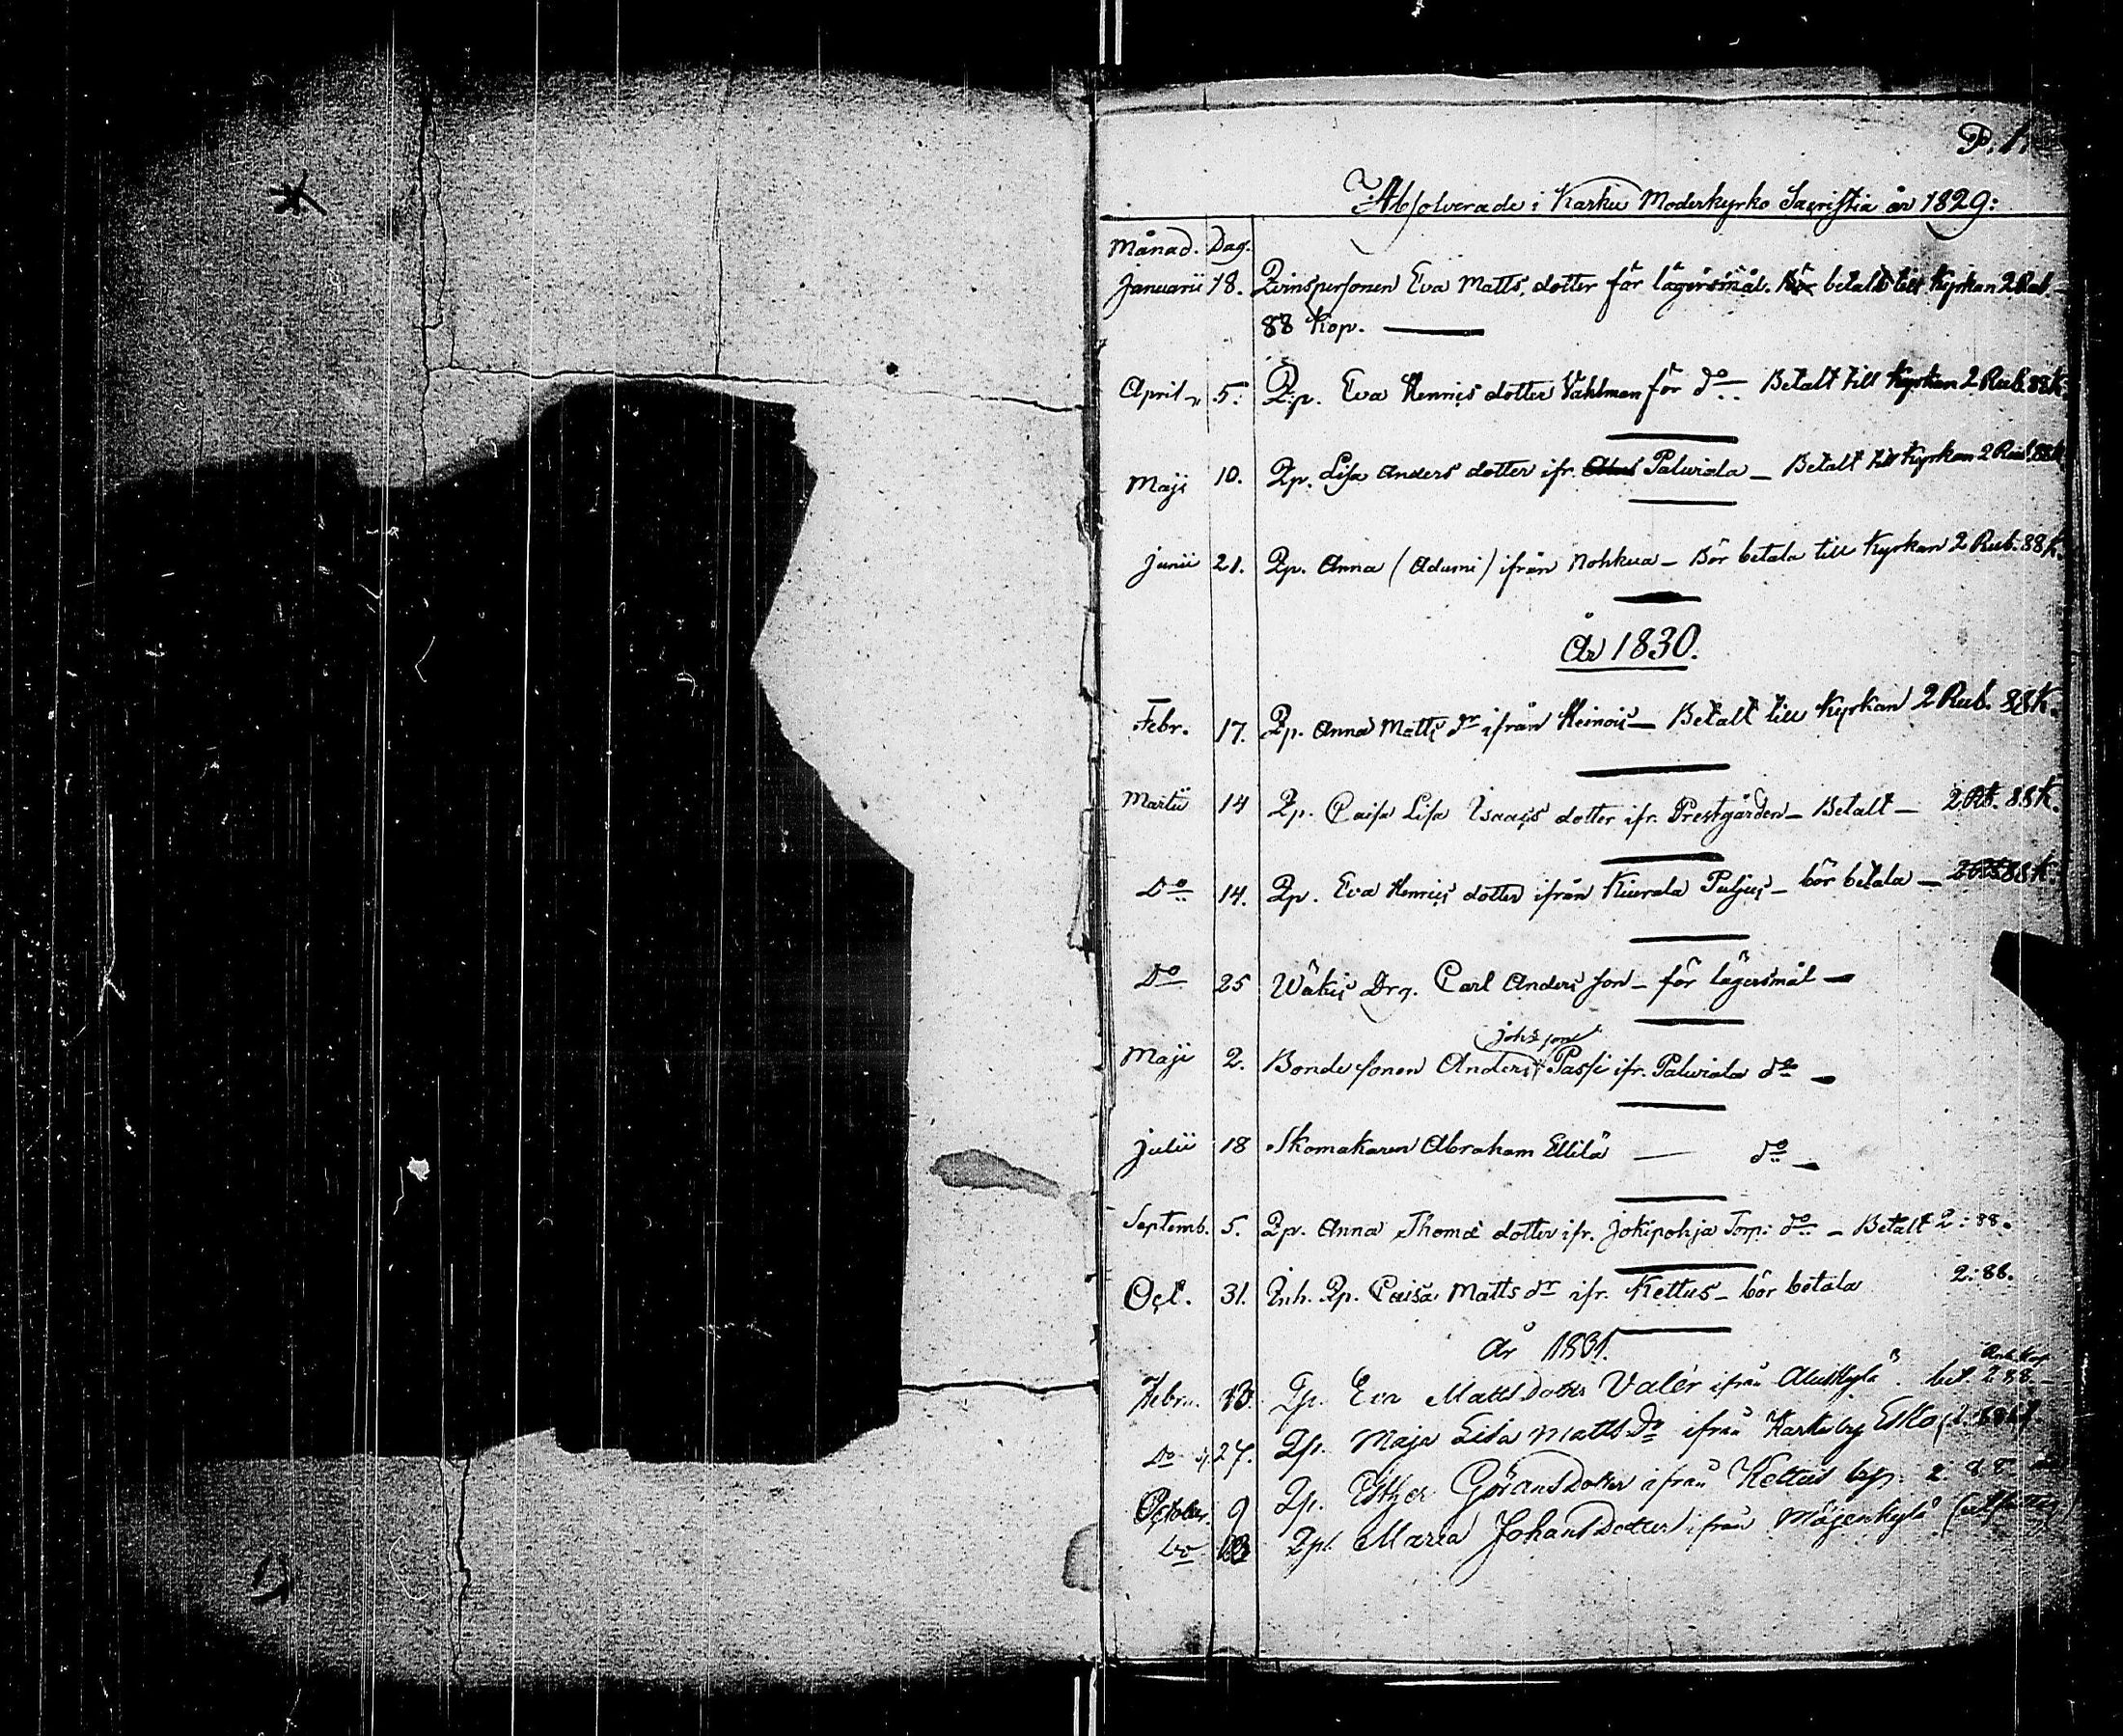 P. 1.
Absolverade i Karku Moderkyrko Sacristia år 1829:
Månad. Dag.
Januarii 18. Qvinspersonen Eva Matts dotter för lägersmål. betalt till Kyrkan 2 Rub.
88 Kop.
April 5. Qp. Eva Henrics dotter Vahlman för do Betalt till Kyrkan 2 Rub. 88 K.
Maji 10. Qp. Lisa Anders dotter ifr. Palviala – Betalt till Kyrkan 2 Rub. 88 K
Junii 21. Qp. Anna (Adami) ifrån Nohkua – Bör betala till Kyrkan 2 Rub. 88 K.
År 1830.
Febr. 17. Qp. Anna Matts dr ifrån Heinois – Betalt till Kyrkan 2 Rub. 88 K.
Martii 14 Qp. Caisa Lisa Isaacs dotter ifr. Prestgården – Betalt – 2 Rb. 88 K.
Do 14. Qp. Eva Henrics dotter ifrån Kiurala – bör betala – 88 K.
Do 25 Carl Anders son – för lägersmål –
johs son
Maji 2. Bonde sonen Anders Passi ifr. Palviala do –
Julii 18 Skomakaren Abraham Ellilä — do –
Septemb. 5. Qp. Anna Thomæ dotter ifr. Jokipohja Torp: do – Betalt 2:88.
Oct. 31. Inh. Qp. Caisa Matts dr ifr. Kettus – bör betala 2:88.
År 1831.
Rub. Kop
Febru. 13. Qp. Eva Mattsdotter Valér ifrån bet. 2 88.
Do 27. Qp. Maja Lisa Matts Dr ifrån Karkuby Esko
October. 9 Qp. Esther Göransdotter ifrån Kettus by. 2 88
Do Qp. Maria Johansdotter ifrån